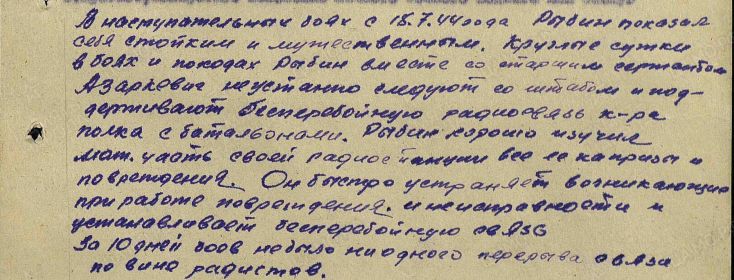 В наступательных боях с 18.7.44 года Рыбин показал
себя стойким и мужественным. Круглые сутки
в боях и походах Рыбин вместе со старшим сержантом
Азаркевич неустанно следуют со штабом и под-
держивают бесперебойную радиосвязь к-ра
полка с батальонами. Рыбин хорошо изучил
мат. часть своей радиостанции все ее капризы и
повреждения. Он быстро устраняет возникающие
при работе повреждения. и неисправности и
устанавливает бесперебойную связь
За 10 дней боев небыло ниодного перерыва связи
по вине радистов.